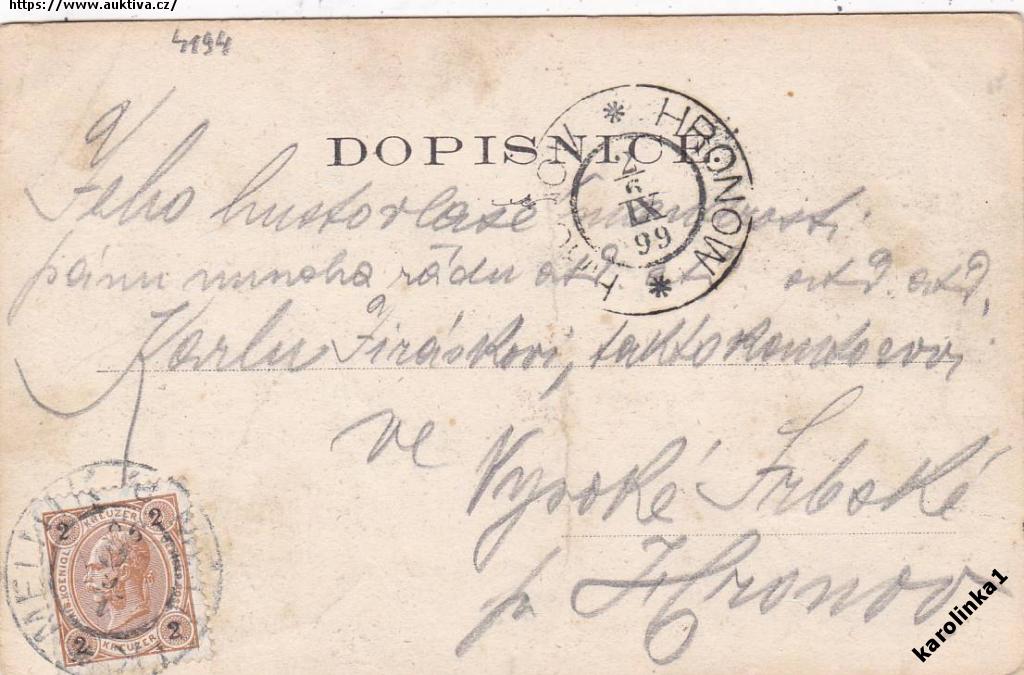 https://www.auktiva.cz/
4194
DOPISNICE
HRONOW
HRONOV
7
6
IX
99
Jeho
pánu mnoha rádu atd. atd. atd. atd.
Karlu Jiráskovi,
ve Vysoké Srbské
p Hronov
2 KREUZER 2
2 KREUZER 2
MĚLNÍK
karolinka1